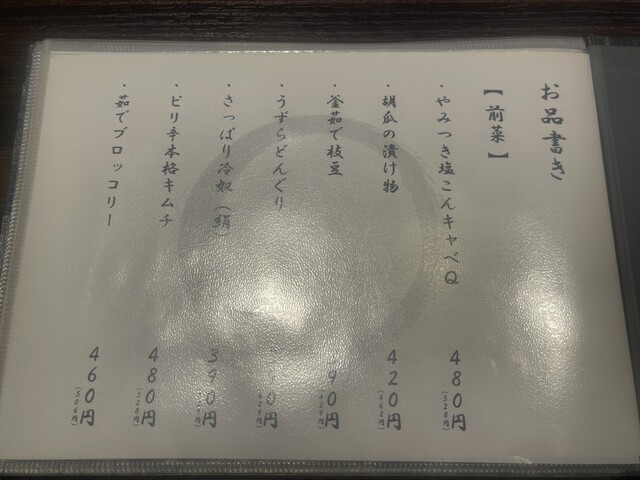 お品書き
【前菜】
・やみつき塩こんキャベQ
480円
(528円)
・胡瓜の漬け物
420円
(462円)
・釜茹で枝豆
390円
(429円)
・うずらどんぐり
90円
(429円)
・さっぱり冷奴(絹)
390円
・ピリ辛本格キムチ
480円
(528円)
・茹でブロッコリー
460円
(506円)